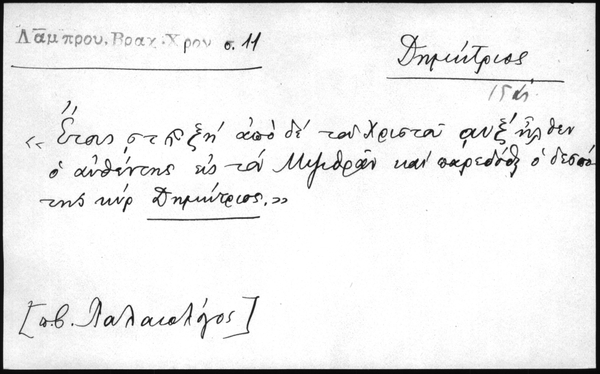 Λάμπρου. Βραχ. Χρον σ. 11
Δημήτριος
15 αἰ.
« Ἔτους ϛ ϡ ξη΄ ἀπὸ δέ τοῦ Χριστοῦ αυξ΄ ἦλθεν
ὁ αὐθέντης εἰς τὸν Μυζιθρᾶν καὶ παρεδόθη ὁ δεσπό
της κύρ Δημήτριος. »
[π.β. Παλαιολόγος]